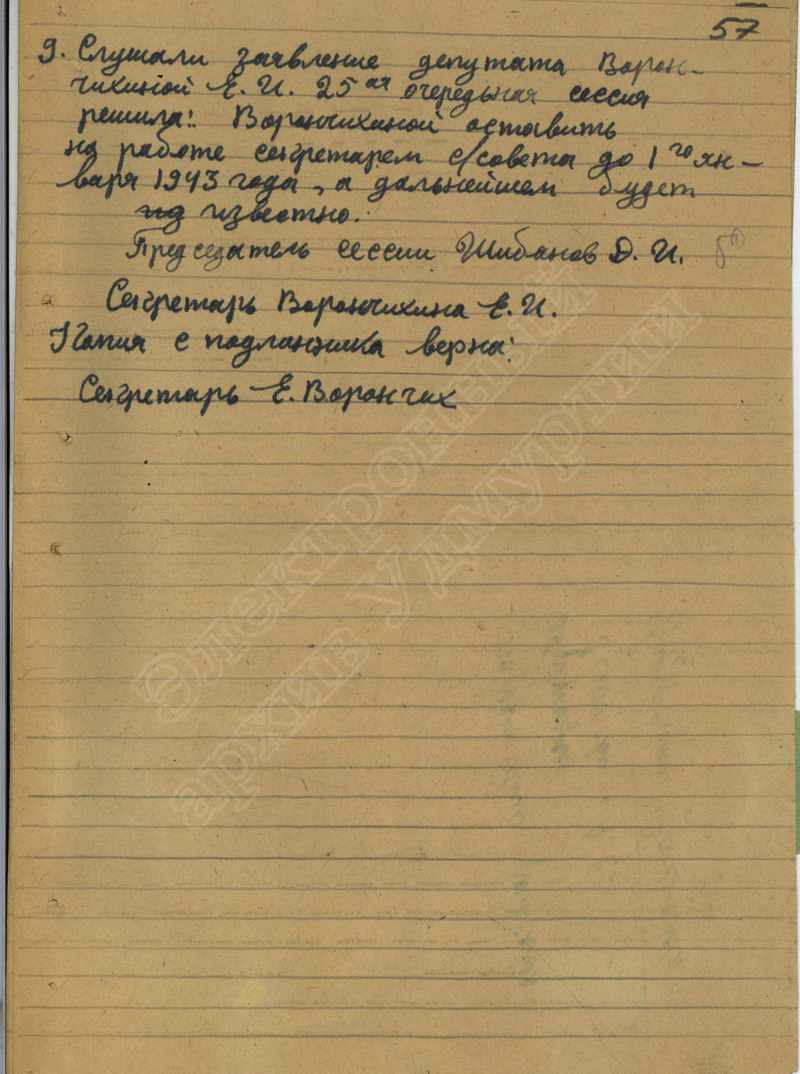 57
9. Слушали заявление депутата Ворон-
чихиной Е. И. 25ая очередьная сессия
решила: Ворончихиной оставить
на работе секретарем с/совета до 1го ян-
варя 1943 года, а дальнейшем будет
известно.
Председатель сессии Шибанов Д. И.
Секретарь Ворончихина Е. И.
Копия с подлинника верна:
Секретарь Е. Ворончих
Электронный
архив Удмуртии